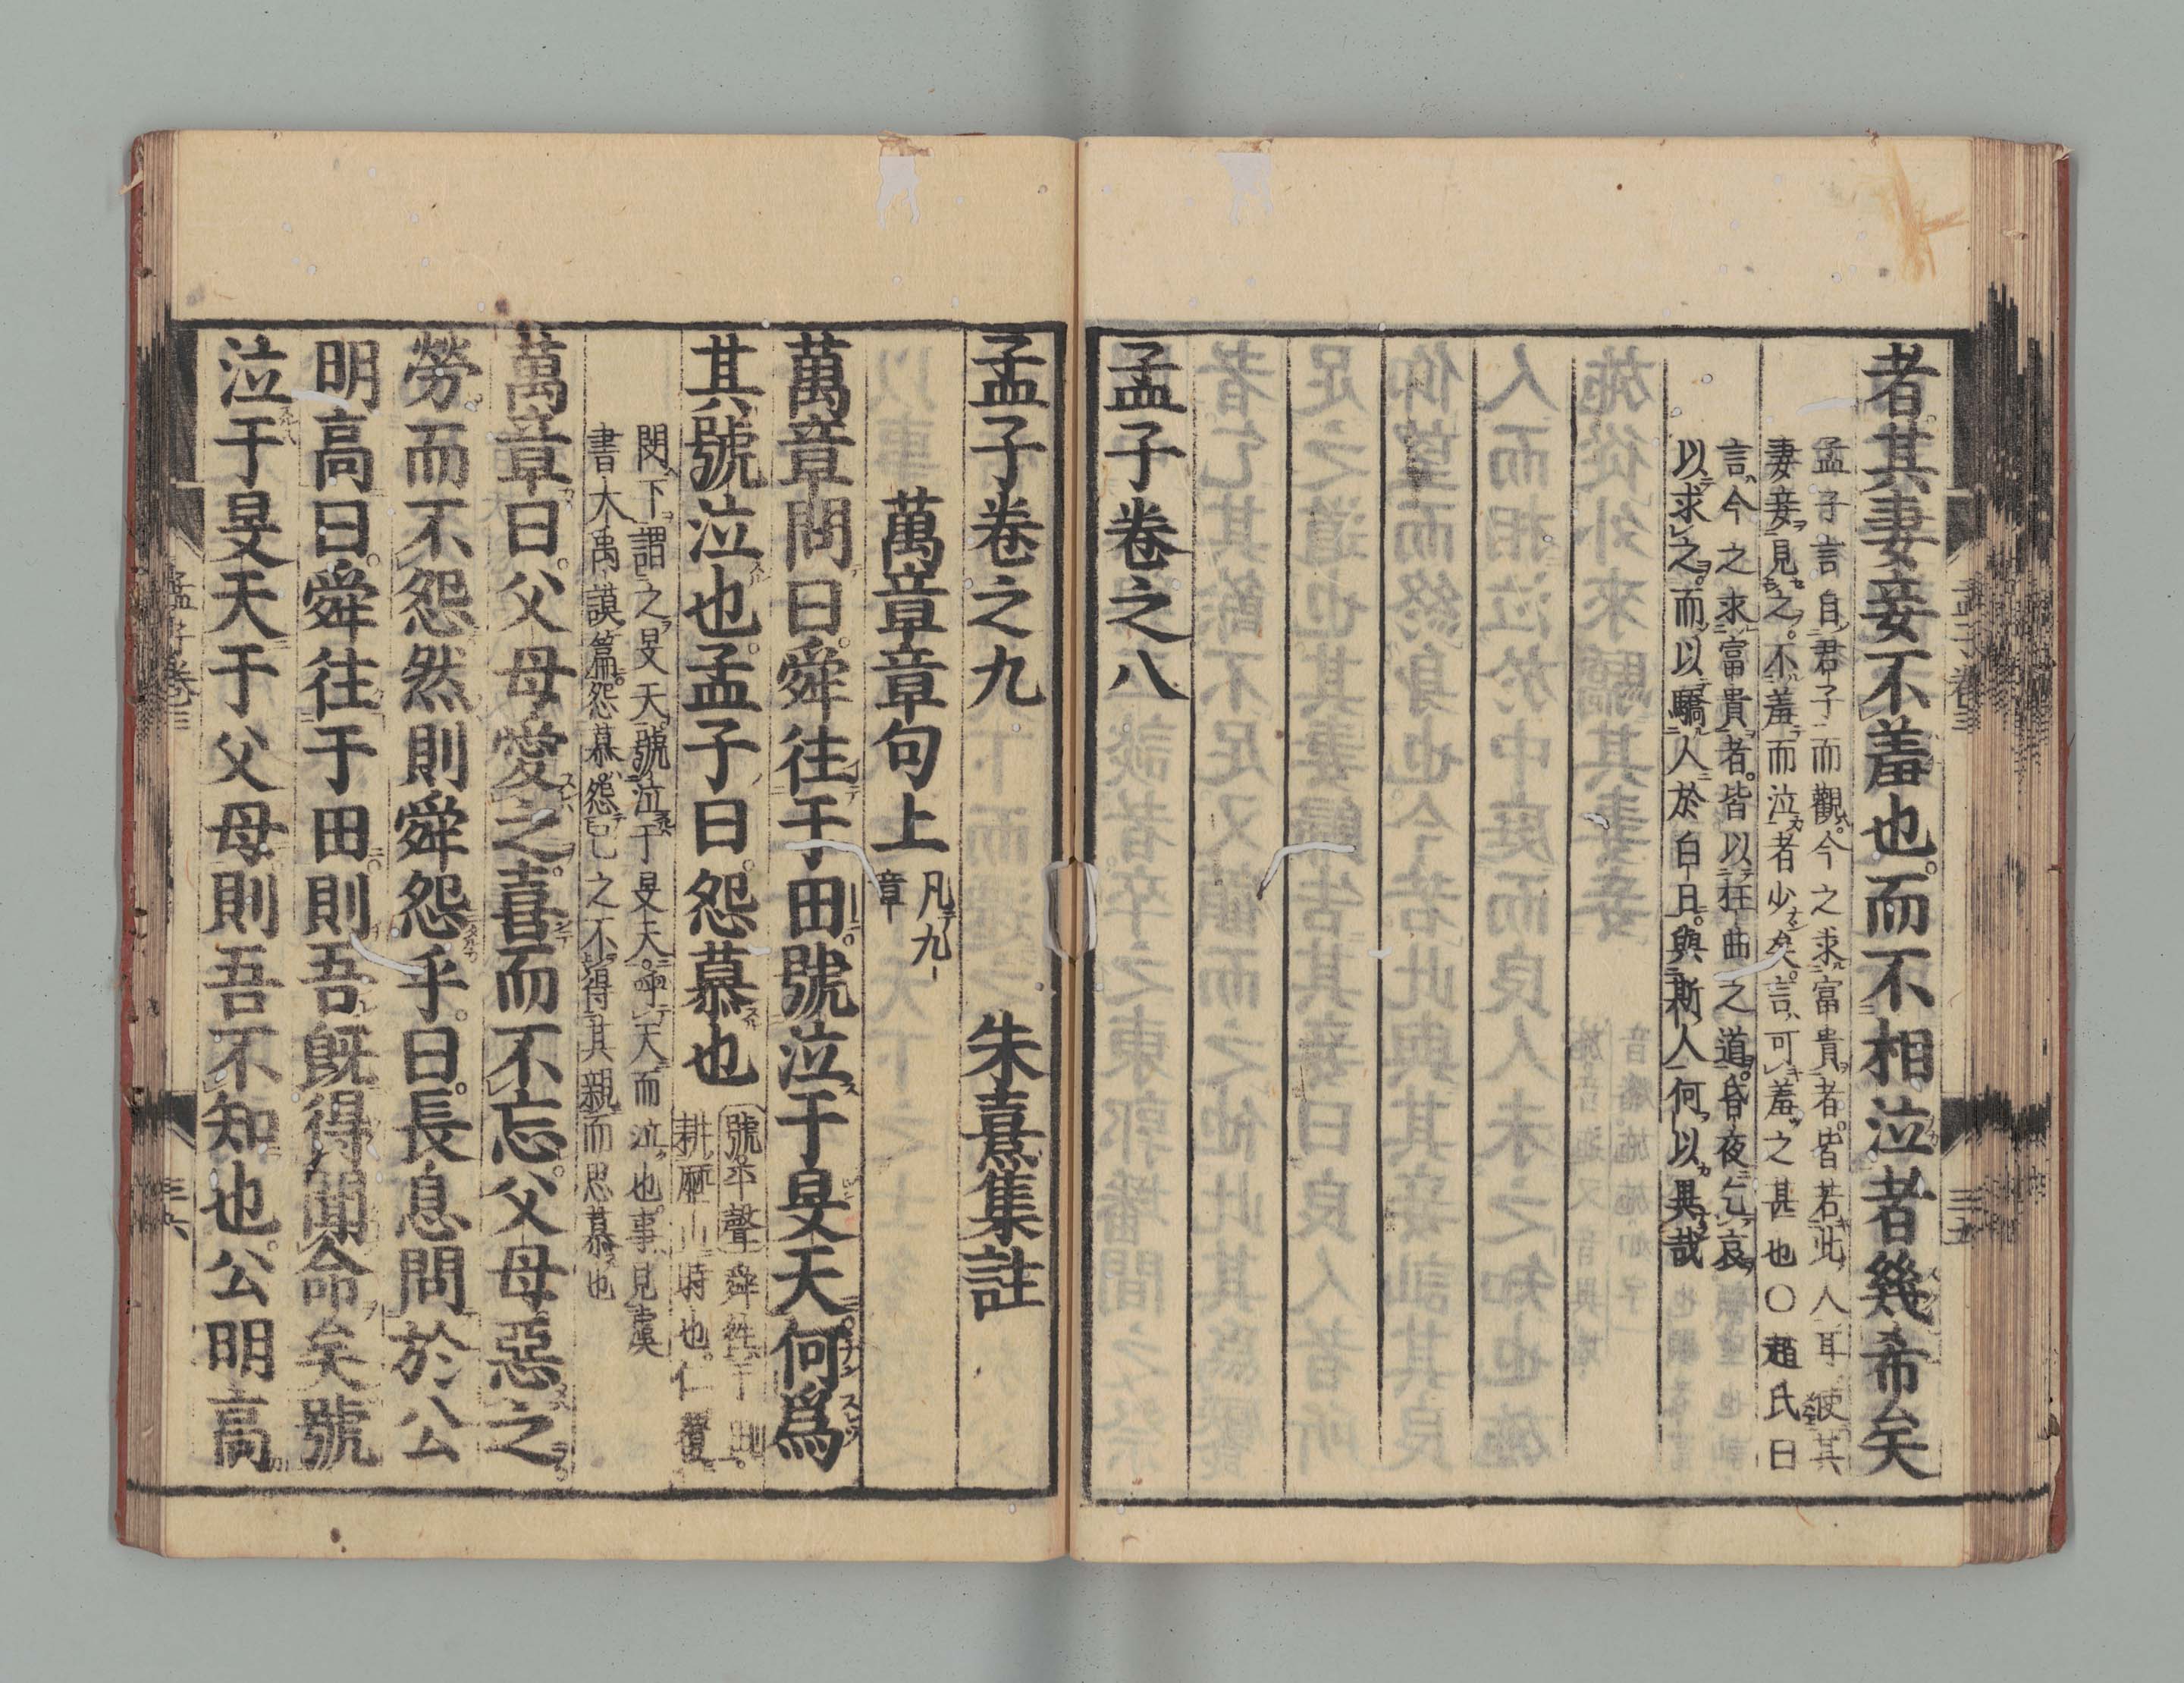 者其妻妾不羞也而不相泣者幾希矣
孟子言自君子而觀今之求富貴者皆若此人耳使其
妻妾見之不羞而泣者少矣言可羞之甚也〇趙氏曰
言今之求富貴者皆以枉曲之道昏夜乞哀
以求之而以驕人於白日與斯人何以異哉
孟子卷之八
孟子卷之九　朱熹集註
萬章章句上
凡九
章
萬章問曰舜往于田號泣于旻天何爲
其號泣也孟子曰怨慕也
號平聲舜往于田
耕歷山時也仁覆
閔下謂之旻天號泣于旻天呼天而泣也事見虞
書大禹謨篇怨慕怨己之不得其親而思慕也
萬章曰父母愛之喜而不忘父母惡之
勞而不怨然則舜怨乎曰長息問於公
明高曰舜往于田則吾既得聞命矣號
泣于旻天于父母則吾不知也公明高
孟子卷三
三五
孟子卷三
三六